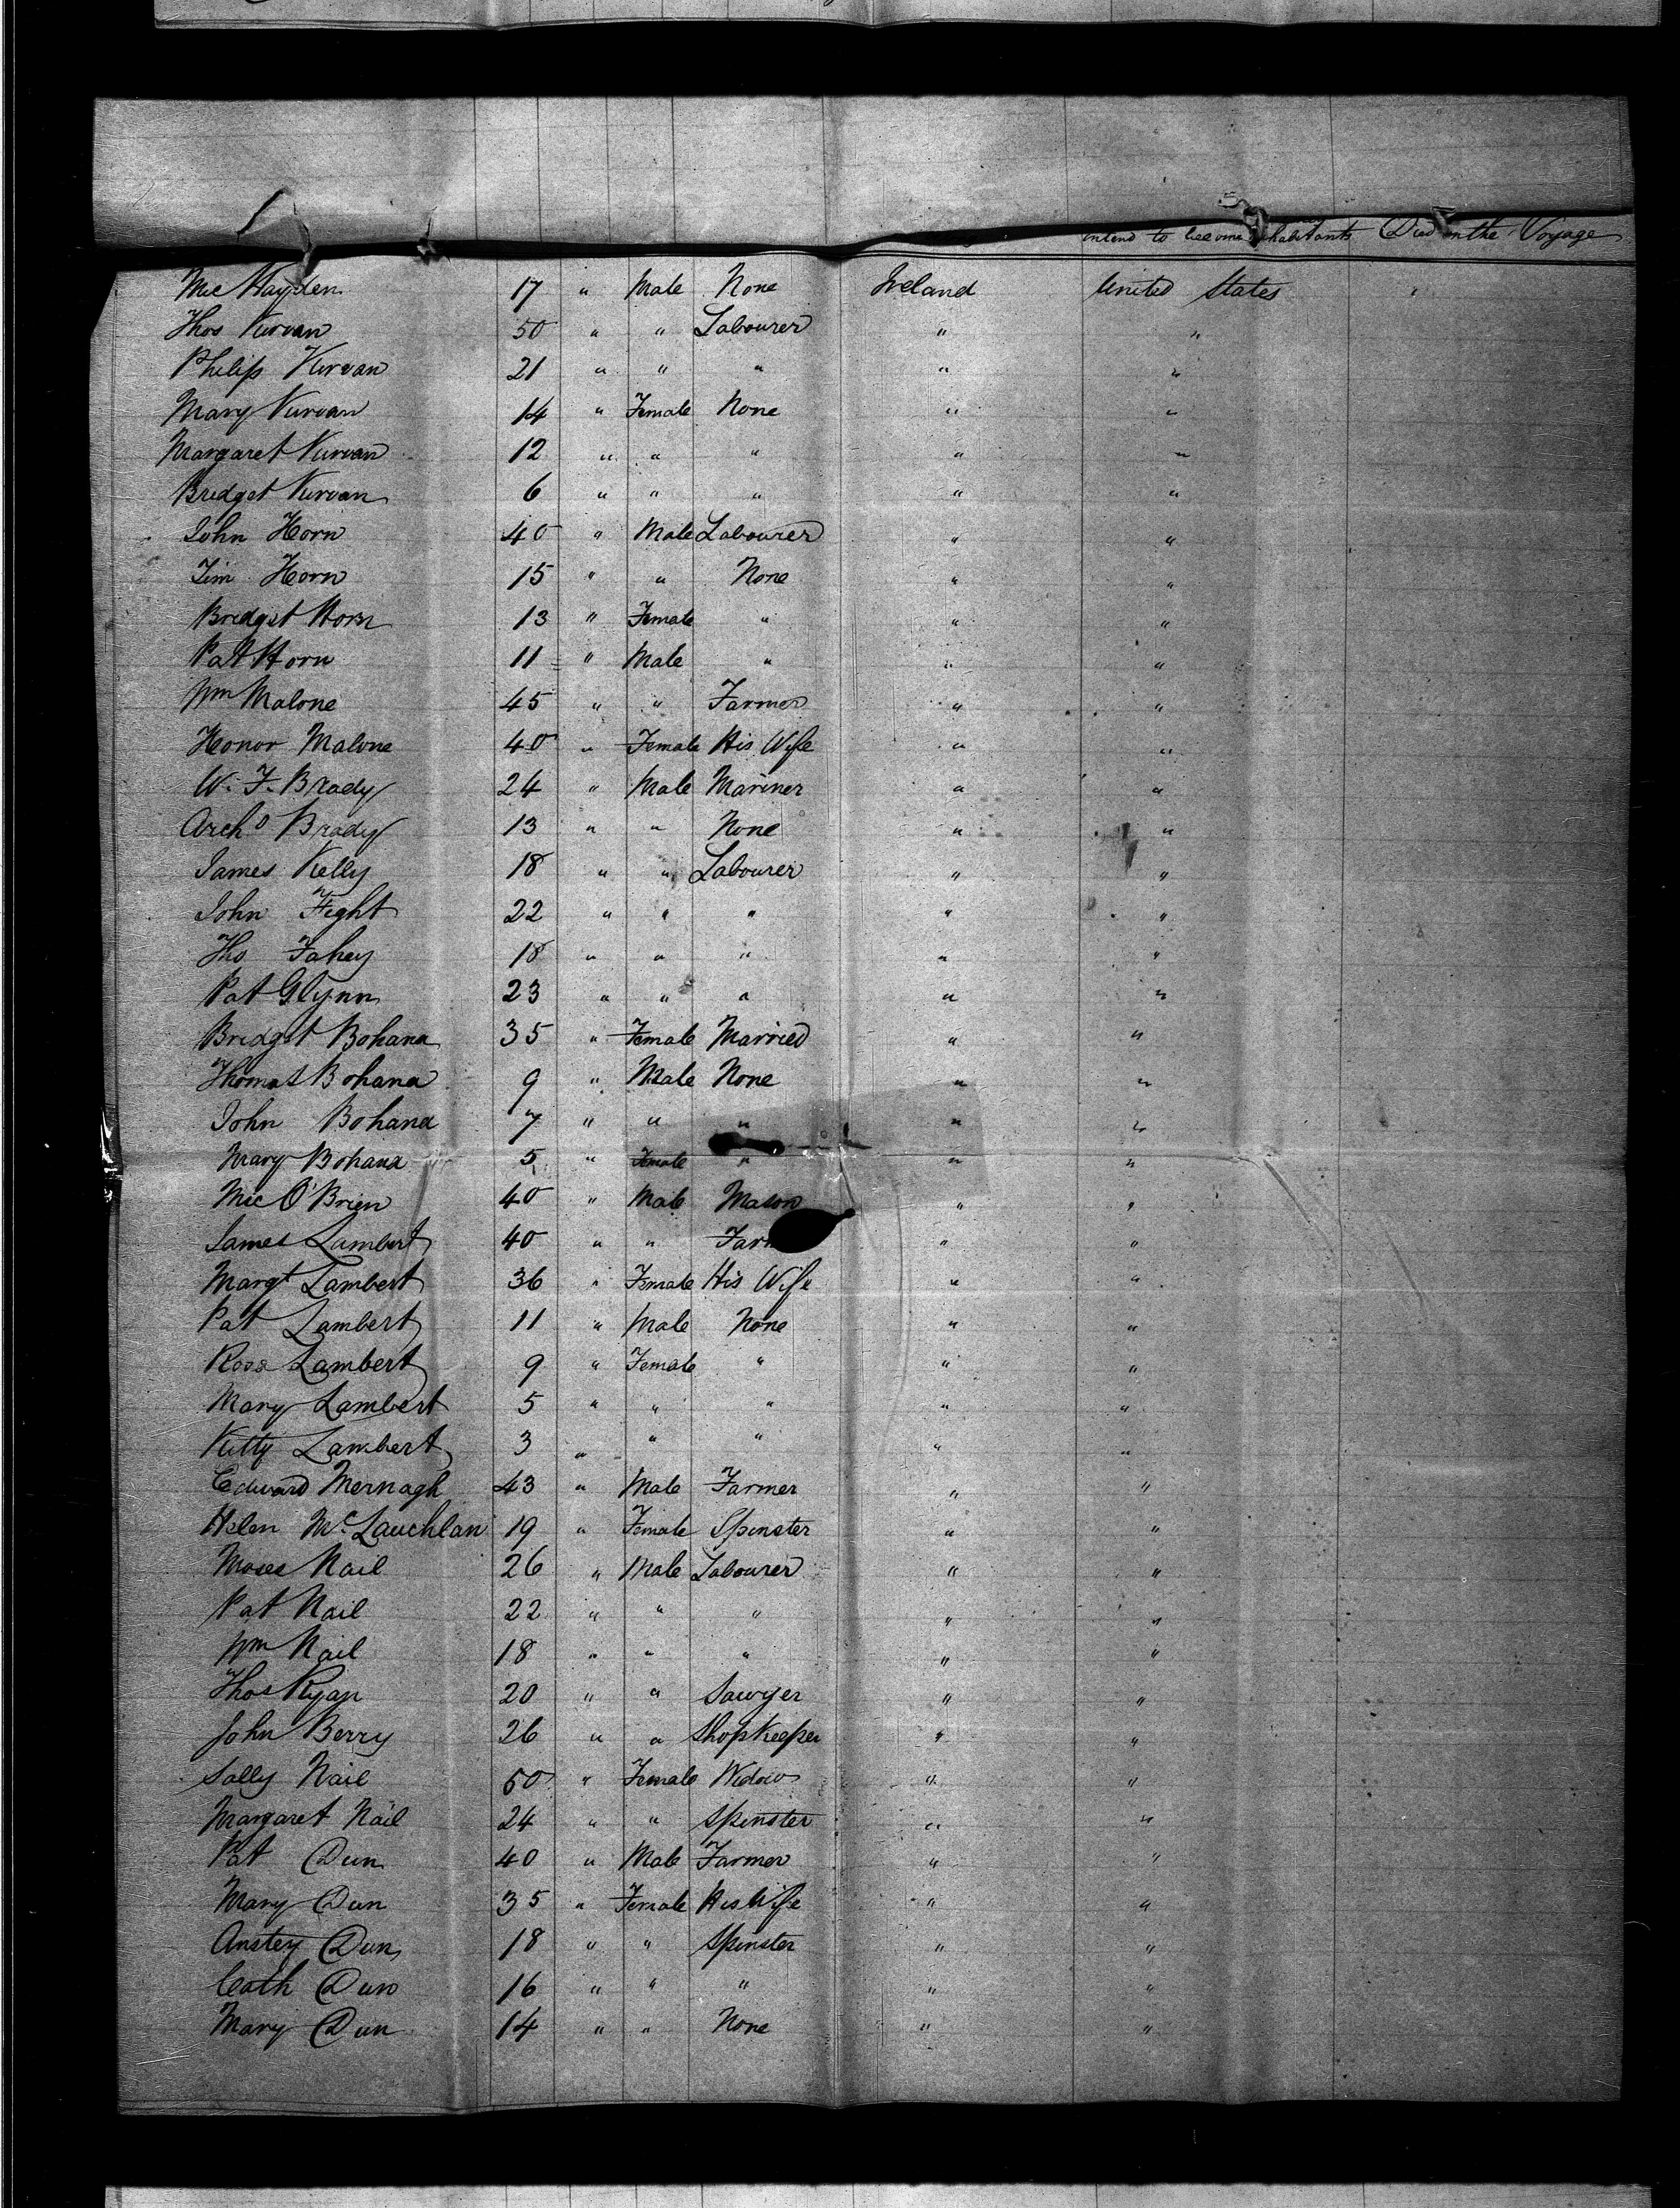 intend to become inhabitants Died on the Voyage
Mic Hayden 17 " Male None Ireland United States
Thos Kurvan 50 " " Labourer " "
Philip Kirvan 21 " " " " "
Mary Kurvan 14 " Female None " "
Margaret Kurvan 12 " " " " "
Bridget Kurvan 6 " " " " "
John Horn 40 " Male Labourer " "
Tim Horn 15 " " None " "
Bridget Horn 13 " Female " " "
Pat Horn 11 " Male " " "
Wm Malone 45 " " Farmer " "
Honor Malone 40 " Female His Wife " "
W. F. Brady 24 " Male Mariner " "
Archd Brady 13 " " None " "
James Kelly 18 " " Labourer " "
John Fight 22 " " " " "
Tho Fahey 18 " " " " "
Pat Glynn 23 " " " " "
Bridget Bohana 35 " Female Married " "
Thomas Bohana 9 " Male None " "
John Bohana 7 " " " " "
Mary Bohana 5 " Female " " "
Mic O'Brien 40 " Male Mason " "
James Lambert 40 " " Farm " "
Margt Lambert 36 " Female His Wife " "
Pat Lambert 11 " Male None " "
Rosa Lambert 9 " Female " " "
Mary Lambert 5 " " " " "
Kitty Lambert 3 " " " " "
Edward Mernagh 43 " Male Farmer " "
Helen Mc Lauchlan 19 " Female Spinster " "
Moses Nail 26 " Male Labourer " "
Pat Nail 22 " " " " "
Wm Nail 18 " " " " "
Thos Ryan 20 " " Sawyer " "
John Berry 26 " " Shopkeeper " "
Sally Nail 50 " Female Widow " "
Margaret Nail 24 " " Spinster " "
Pat Dun 40 " Male Farmer " "
Mary Dun 35 " Female His Wife " "
Anstey Dun 18 " " Spinster " "
Cath Dun 16 " " " " "
Mary Dun 14 " " None " "